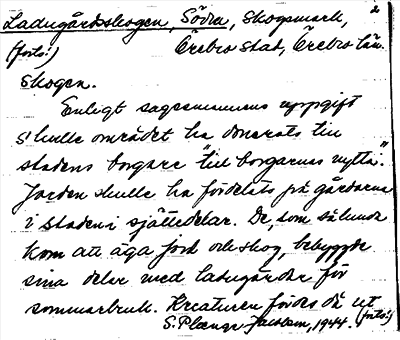 Ladugårdsskogen, Södra, skogsmark, 2
(forts.) Örebro stad, Örebro län.
skogen.
Enligt sagesmannens uppgift
skulle området ha donerats till
stadens borgare "till borgarnas nytta".
Jorden skulle ha fördelats på gårdarna
i staden i sjättedelar. De, som sålunda
kom att äga jord och skog, bebyggde
sina delar med ladugårdar för
sommarbruk. Kreaturen fördes då ut
(forts.)
S. Plænge Jacobson, 1944.